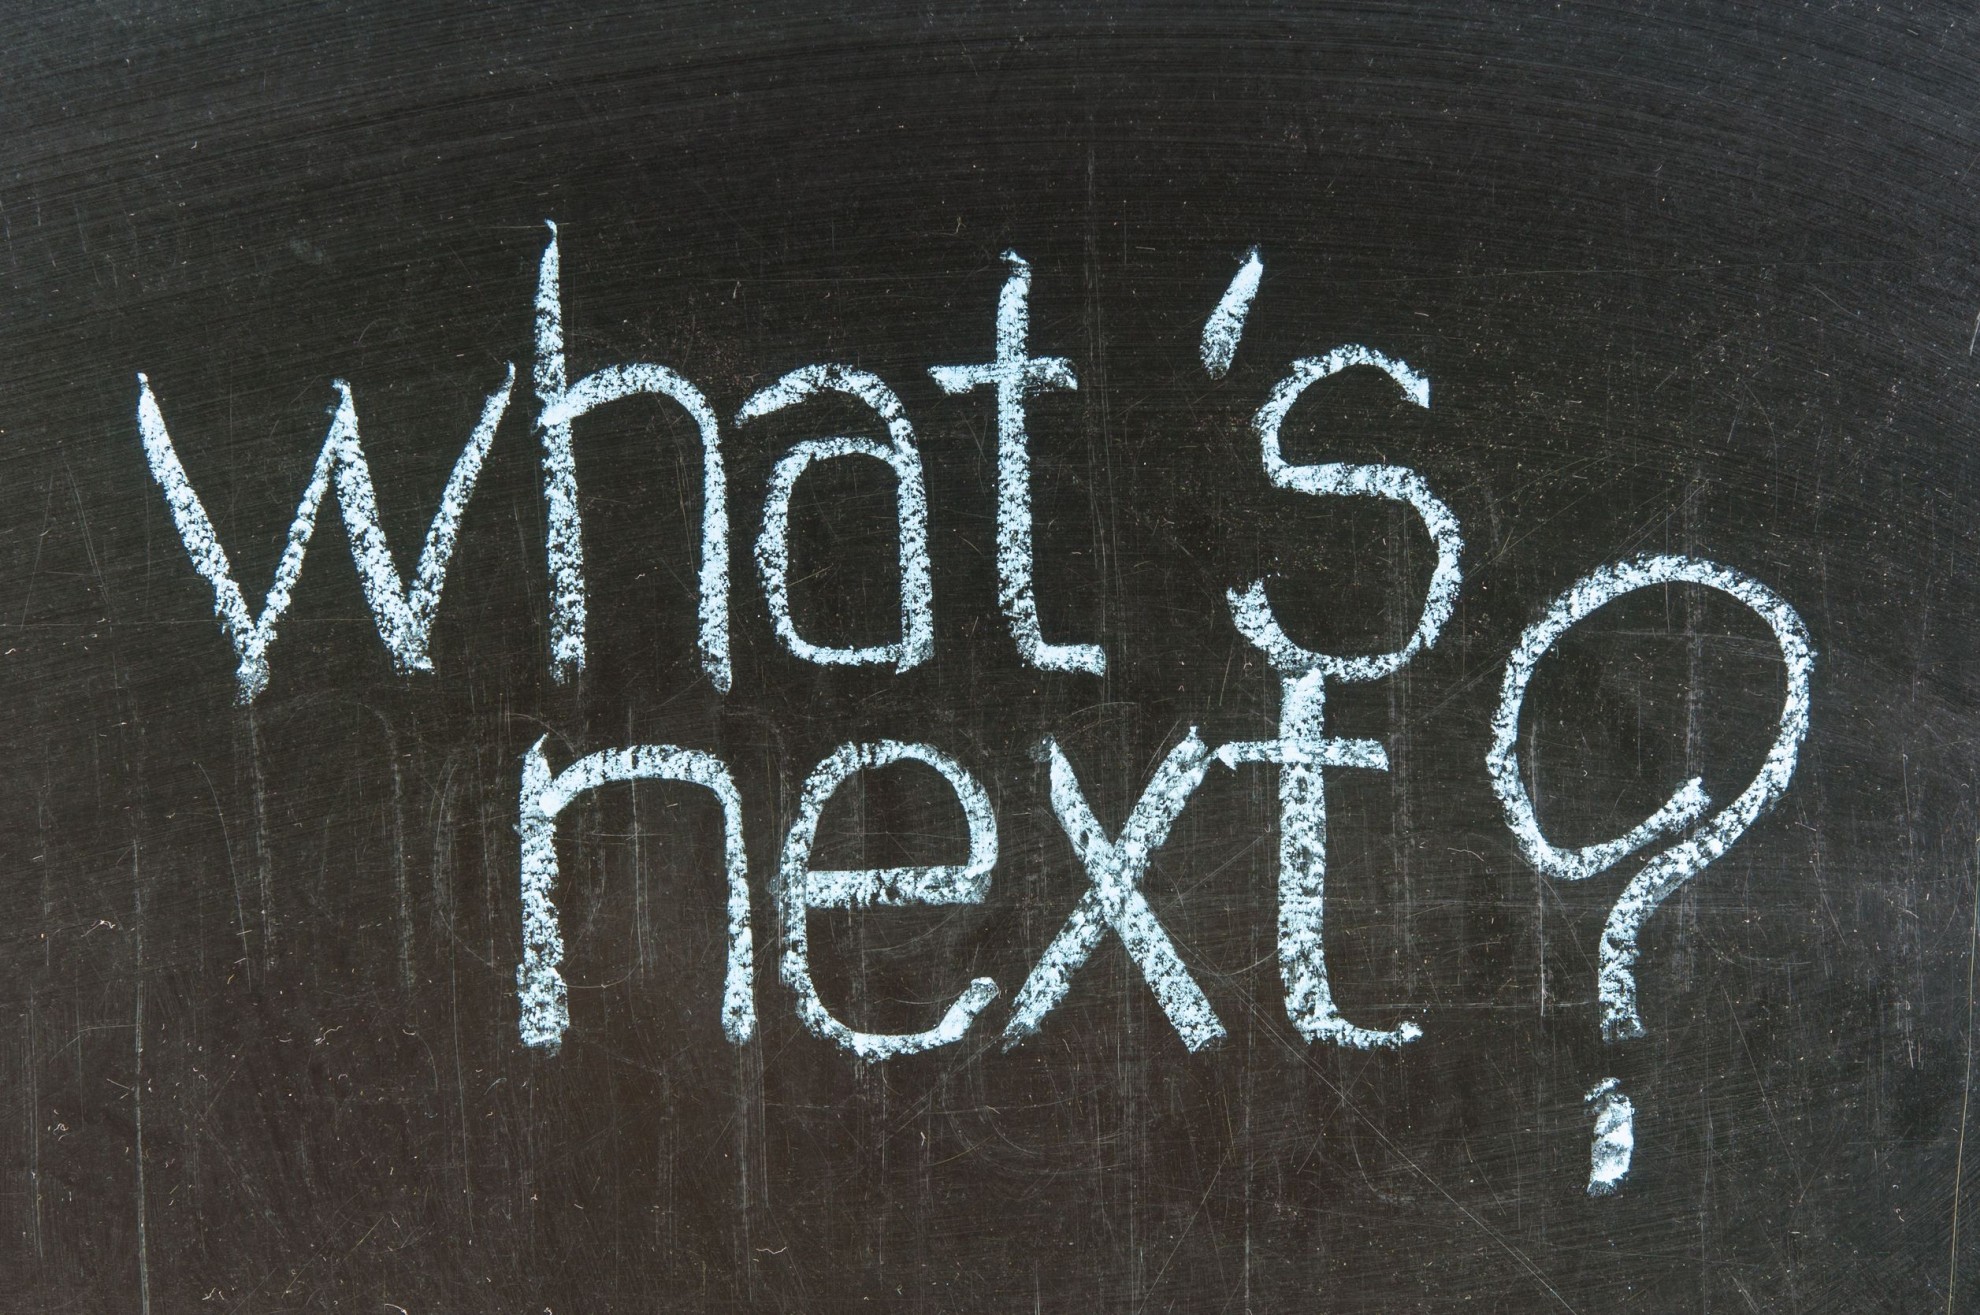 what's
next?